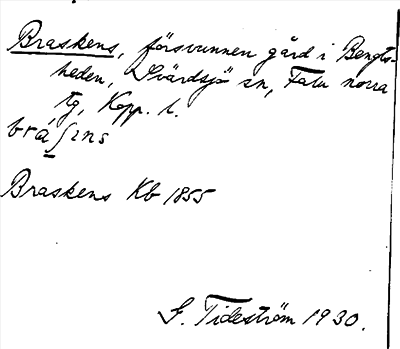 Braskens, försvunnen gård i Bengts-
heden, Svärdsjö sn, Falu norra
tg, Kopp. l.
brá̱ʃɪns
Braskens Kb 1855
G. Tideström 1930.